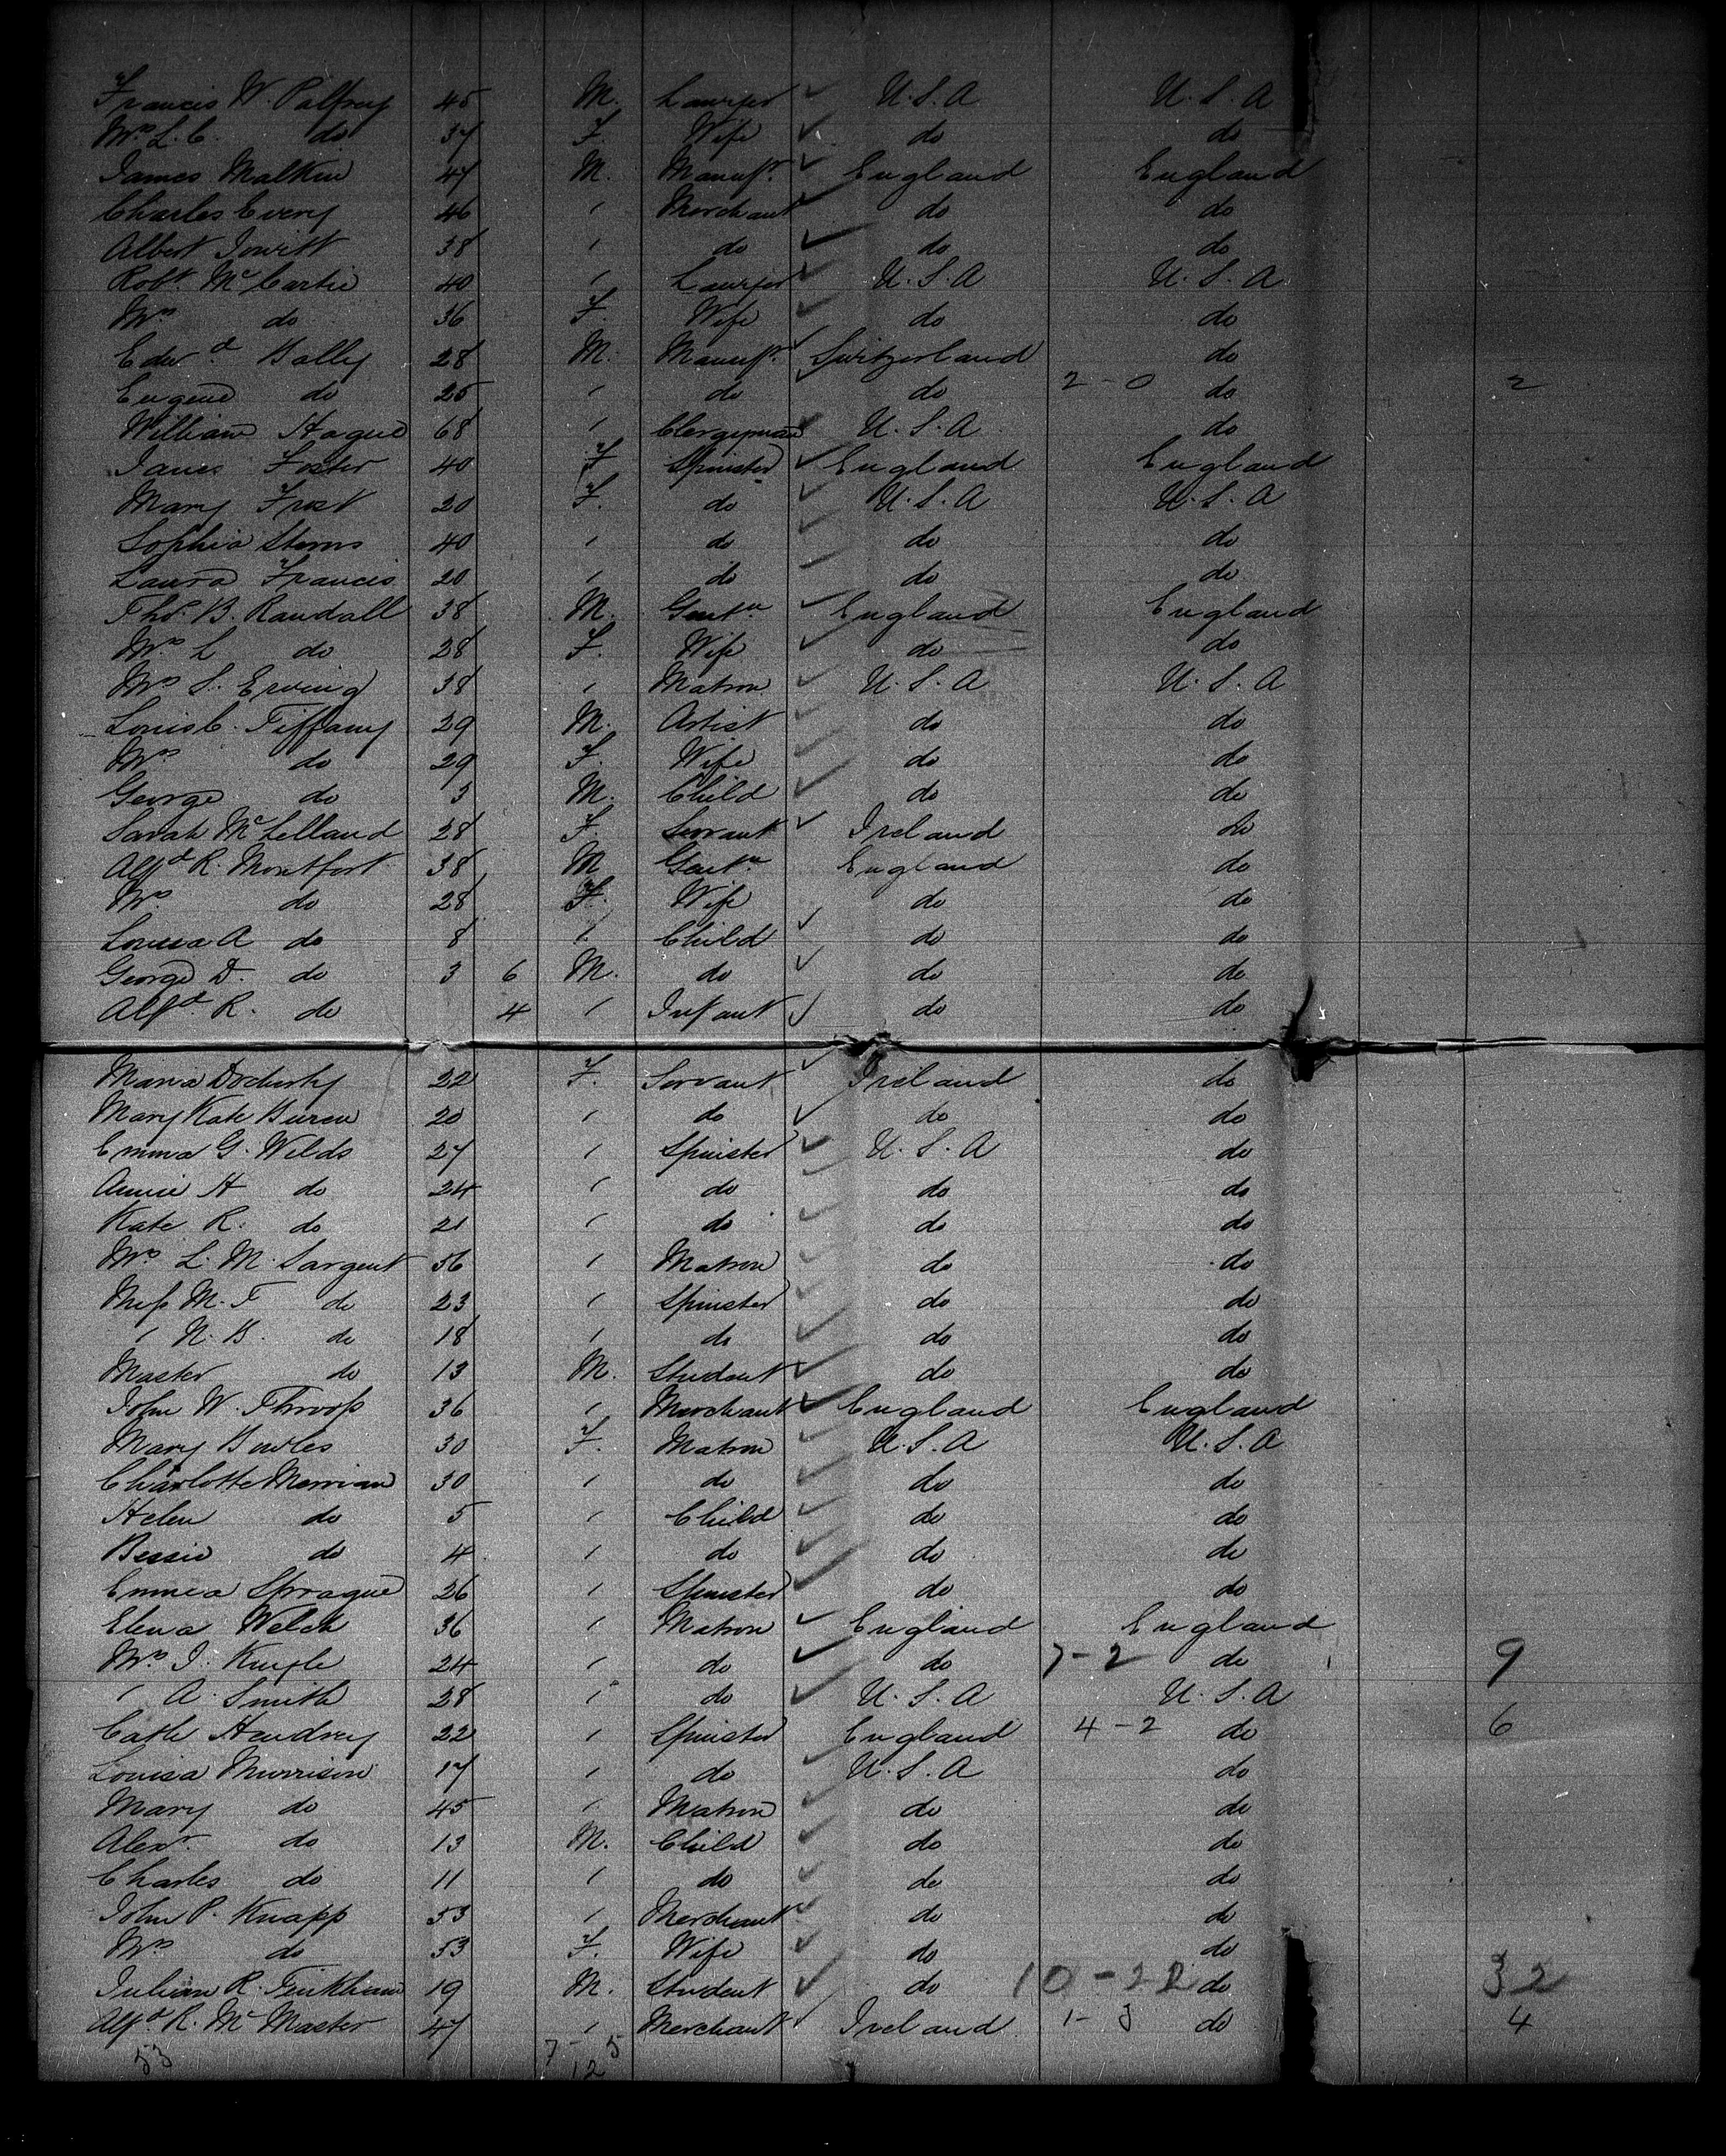 Francis W. Palfrey 45 M. Lawyer U.S.A U.S.A
Mrs L. C. do 37 F. Wife do do
James Malkin 47 M. Manufr. England England
Charles Every 46 " Merchant do do
Albert Jowitt 38 " do do do
Robt. McCartie 40 " Lawyer U.S.A U.S.A
Mrs do 36 F. Wife do do
Edwd. Bally 28 M. Manufr. Switzerland do
Eugene do 25 " do do 2-0 do 2
William Hague 68 " Clergyman U.S.A do
Janes Foster 40 F Spinster England England
Mary Frost 20 F. do U.S.A U.S.A
Sophia Sterns 40 " do do do
Laura Francis 20 " do do do
Thos. B. Randall 38 M. Gentn. England England
Mrs L do 28 F. Wife do do
Mrs S. Erving 38 " Matron U.S.A U.S.A
Louis C. Tiffany 29 M. Artist do do
Mrs do 29 F. Wife do do
George do 3 M. Child do do
Sarah McLelland 28 F. Servant Ireland do
Alfd R. Montfort 38 M Gentn. England do
Mrs do 28 F. Wife do do
Louisa A do 8 " Child do do
George D. do 3 6 M. do do do
Alfd. R. do 4 " Infant do do
Maria Docherty 22 F. Servant Ireland do
Mary Kate 20 " do do do
Emma G. Wilds 27 " Spinster U.S.A do
Annie H do 24 " do do do
Kate R. do 21 " do do do
Mrs L. M. Sargent 56 " Matron do do
Miss M. T do 23 " Spinster do do
" N. B. do 18 " do do do
Master do 13 M. Student do do
John W. Throop 36 " Merchant England England
Mary Bowles 30 F. Matron U.S.A U.S.A
Charlotte Merriam 30 " do do do
Helen do 5 " Child do do
Bessie do 4 " do do do
Emma Sprague 26 " Spinster do do
Elena Welch 36 " Matron England England
Mrs J. 24 " do do 7-2 do 9
" A. Smith 28 " do U.S.A U.S.A
Cath Hendrey 22 " Spinster England 4-2 do 6
Louisa Murrison 17 " do U.S.A do
Mary do 45 " Matron do do
Alexr. do 13 M. Child do do
Charles do 11 " do do do
John P. Knapp 53 " Merchant do do
Mrs do 53 F. Wife do do
Julian R. Tinkham 19 M. Student do 10-22 do 32
Alfd. R. McMaster 47 " Merchant Ireland 1-3 do 4
53 7-5
12